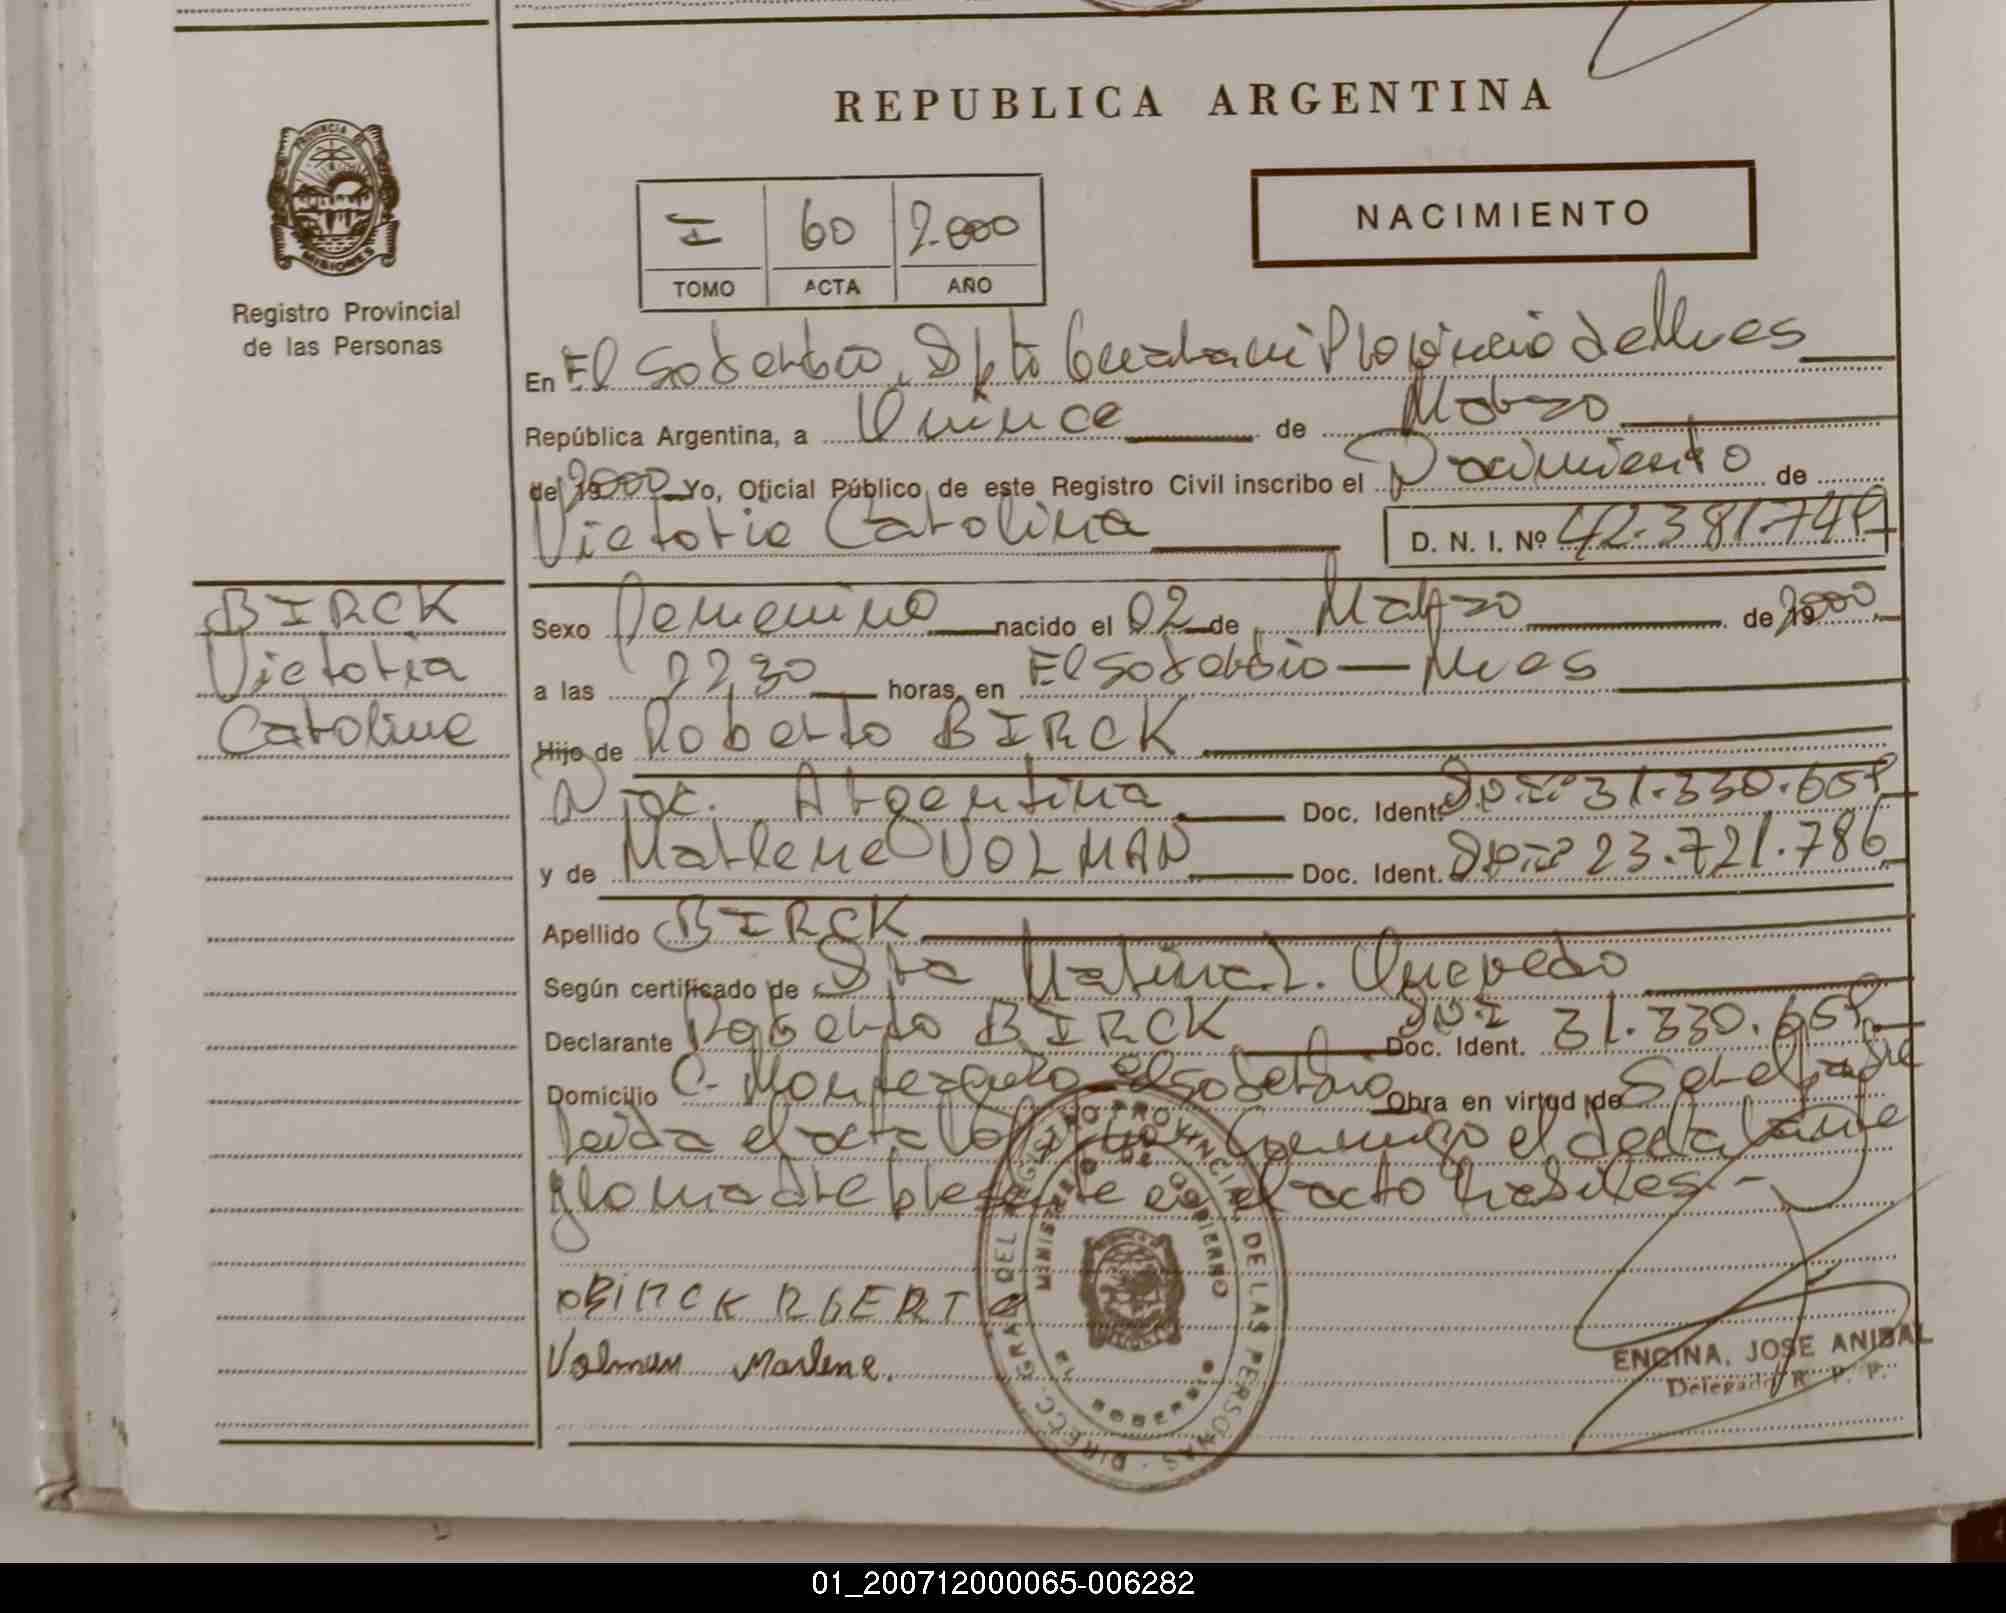 REPUBLICA ARGENTINA
PROVINCIA DE MISIONES
Registro Provincial
de las Personas
I 60 2.000
TOMO ACTA AÑO
NACIMIENTO
En El Soberbio, Dpto Guarani Provincia de Mnes
República Argentina, a Quince de Marzo
de 2000 Yo, Oficial Público de este Registro Civil inscribo el Nacimiento de
Victoria Carolina D. N. I. Nº 42.381.749
BIRCK
Victoria
Carolina
Sexo Femenino nacido el 02 de Marzo de 2000
a las 22,30 horas, en El Soberbio — Mnes
Hijo de Roberto BIRCK
Nac. Argentina Doc. Ident. DNI 31.330.659
y de Marlene VOLMAN Doc. Ident. DNI 23.721.786
Apellido BIRCK
Según certificado de Dra Marina L. Quevedo
Declarante Roberto BIRCK Doc. Ident. DNI 31.330.659
Domicilio C. Monteagudo El Soberbio Obra en virtud de Ser el padre
leida el acta la conmigo el declarante
y la madre presente en el acto habiles.-
BIRCK RBERTO
Volman Marlene.
DIRECC. GRAL. DEL REGISTRO PROVINCIAL DE LAS PERSONAS
MINISTERIO DE GOBIERNO
EL SOBERBIO
ENCINA, JOSE ANIBAL
Delegado R. P. P.
01_200712000065-006282